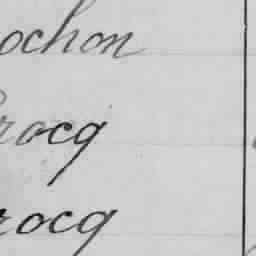 ochon
rocq
rocq